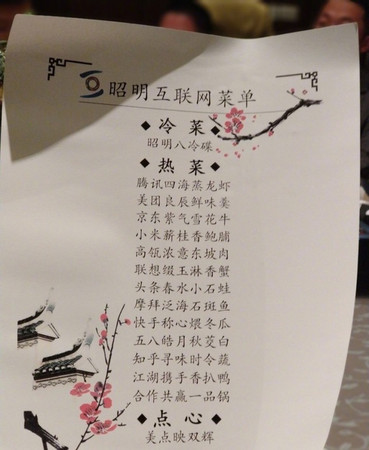 昭明互联网菜单
◆ 冷菜 ◆
昭明八冷碟
◆ 热菜 ◆
腾讯四海蒸龙虾
美团良辰鲜味羹
京东紫气雪花牛
小米薪桂香鲍脯
高瓴浓意东坡肉
联想缀玉淋香蟹
头条春水小石蛙
摩拜泛海石斑鱼
快手称心煨冬瓜
五八皓月秋茭白
知乎寻味时令蔬
江湖携手香扒鸭
合作共赢一品锅
◆ 点心 ◆
美点映双辉